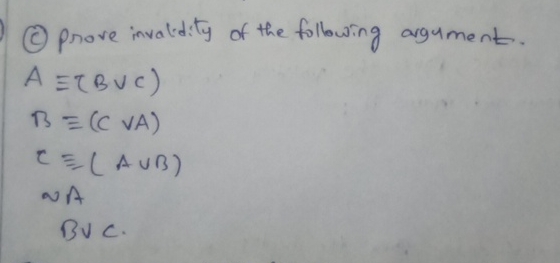 © prove invalidity of the following argument.
A ≡ (B ∨ C)
B ≡ (C ∨ A)
C ≡ (A ∨ B)
~A
B ∨ C.